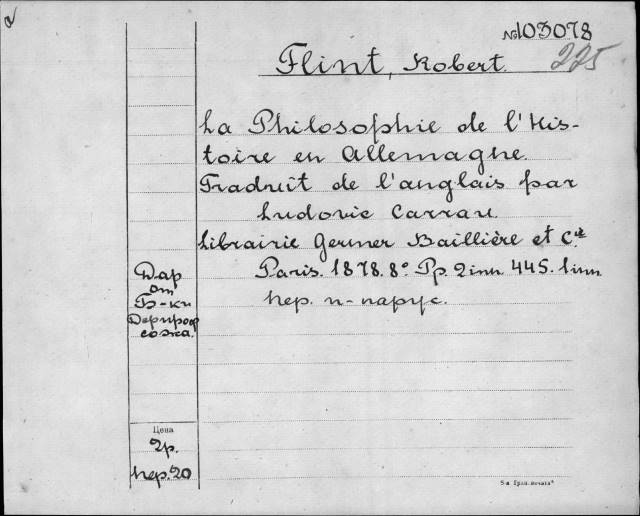 №103078
Flint, Robert.
225
La Philosophie de l'His-
toire en Allemagne.
Traduit de l'anglais par
Ludovic Carrau.
Librairie Germer Baillière et Cie
Paris. 1878. 8º Pp. 2 inn 445. 1 inn
пер. п-парус.
Дар
от
Б-ки
Цена
2р.
пер. 20